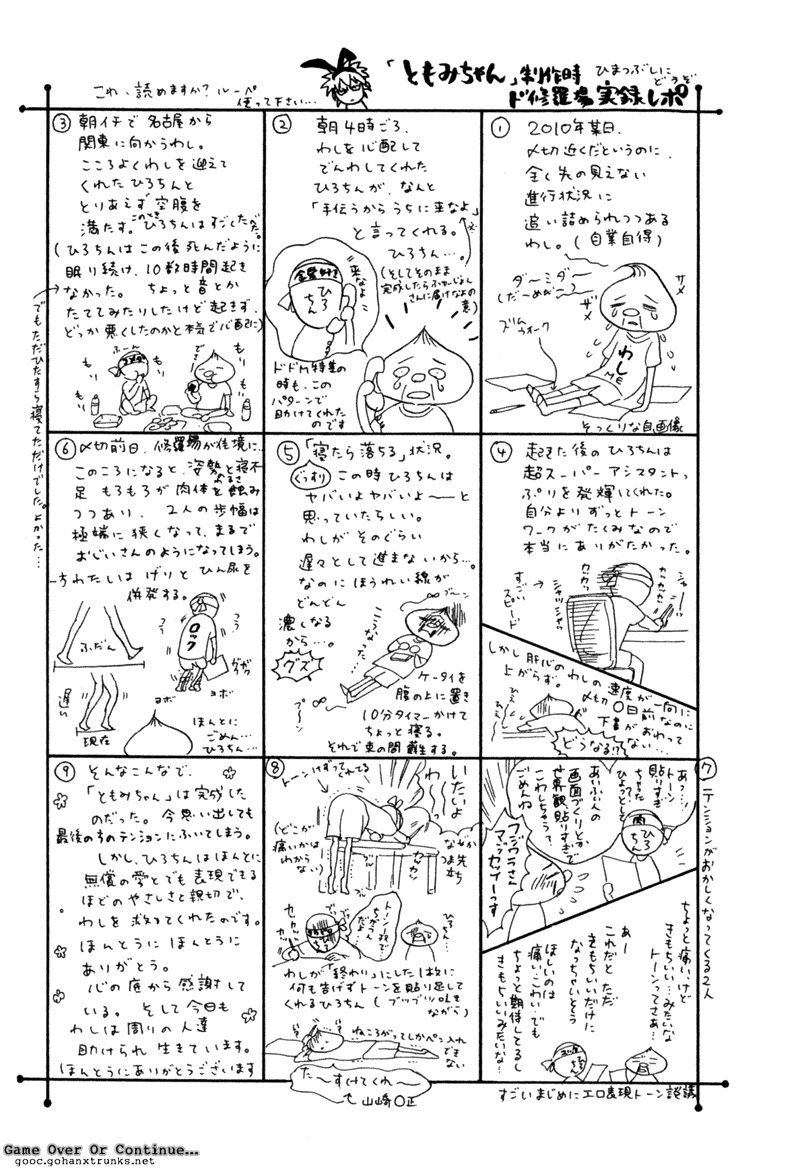 「ともみちゃん」制作時
ド修羅場実録レポ
ひまつぶしに
どうぞ
これ、読めますか？ルーペ
使って下さい…
① 2010年某日.
〆切近くだというのに、
全く先の見えない
進行状況に
追い詰められつつある
わし。(自業自得)
ダ〜ミダ〜
(だーめだー)
ザメ
ザメ
ズルム
ウォーク
わし
ME
そっくりな自画像
② 朝4時ごろ、
わしを心配して
でんわしてくれた
ひろちんが、なんと
「手伝うからうちに来なよ」
と言ってくれる。
ひろちん…。
(そしてそのまま
完成したら
さんに届けなよの
意)
来なよ
ひろちん
ドドM特集の
時も、この
パターンで
助けてくれた
のです
③ 朝イチで名古屋から
関東に向かうわし。
こころよくわしを迎えて
くれたひろちんと
とりあえず空腹を
満たす。このときひろちんはすごくただ。
(ひろちんはこの後死んだように
眠り続け、10数時間起き
なかった。 ちょっと音とか
たててみたりしたけど起きず、
どっか悪くしたのかと本当に心配に)
でもただひたすら寝てただけでした。よかった…
ふーん
でさー
もり
もり
もり
もり
④ 起きた後のひろちんは
超スーパーアシスタントっ
ぷりを発揮してくれた。
自分よりずっとトーン
ワークがたくみなので
本当にありがたかった。
すごい
スピード
シャッシャッ
カカカッ
カッカッカッ
シャー
しかし肝心のわしの速度が一向に
上がらず。〆切〇日前なのに
下書がおわって
ない…
どうなる!?
⑤ 「寝たら落ちる」状況。
ぐっすり
この時ひろちんは
ヤバいよヤバいよ〜と
思っていたらしい。
わしがそのぐらい
遅々として進まないから…。
なのにほうれい線が
どんどん
濃くなる
から…。
グズ
こうなった
プーン
ケータイを
腹の上に置き
10分タイマーかけて
ちょっと寝る。
それで束の間蘇生する。
⑥ 〆切前日、修羅場が佳境に…
このころになると、姿勢のわるさと寝不
足 もろもろが肉体を蝕み
つつあり、 2人の歩幅は
極端に狭くなって、まるで
おじいさんのようになってしまう。
ちわたいはげりとひん尿を
併発する。
ふだん
遅い
現在
ロック
フラ
フラ
ヨボ
ヨボ
ほんとに
ごめん…
ひろちん…
⑦ テンションがおかしくなってくる2人
あっ…
トーン
貼りすぎ
ちゃった
ひょっとして
あいぶぃんの
画面づくりとか
世界観、貼りすぎて
こわしちゃうって
ごめんね
肉
ひろちん
フジデラさん
マジゼツブーっす
ちょっと痛いけど
きもちいい…みたいな
トーンってさぁ…
あー
これだとただ
きもちいいだけに
なっちゃいそう
ほしいのは
痛い、こわい、でも
ちょっと期待してるし
きもちいいみたいな…
すごいまじめにエロ表現トーン談議
⑧ トーンけずってれてる
わ
いたいよ
(どこが
痛いかは
わから
ない)
カッ
カッ
なぜか
つま先
立ち
トーン1枚で
ちがうん
だよ
ひろちん…
わしが「終わり」にした1枚に
何も告げずトーンを貼り足して
くれるひろちん (ブツブツ叱き
ながら)
ねころがってしかペン入れ
できない
た〜すけてくれ〜
by山崎〇正
⑨ そんなこんなで、
「ともみちゃん」は完成した
のだった。今思い出しても
最後の方のテンションにふいてしまう。
しかし、ひろちんはほんとに
無償の愛とでも表現できる
ほどのやさしさと親切で、
わしを救ってくれたのです。
ほんとうにほんとうに
ありがとう。
心の底から感謝して
いる。 そして今日も
わしは周りの人達に
助けられ生きています。
ほんとうにありがとうございます
Game Over Or Continue...
gooc.gohanxtrunks.net